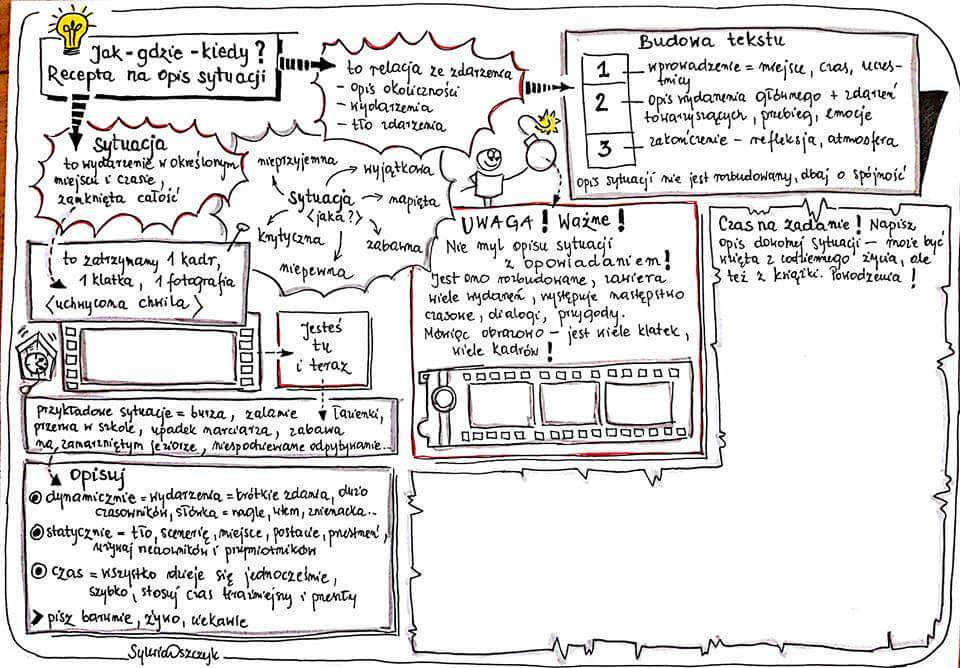 Jak - gdzie - kiedy?
Recepta na opis sytuacji
to relacja ze zdarzenia
- opis okoliczności
- wydarzenia
- tło zdarzenia
Budowa tekstu
1 wprowadzenie = miejsce, czas, uczest-
tnicy
2 opis wydarzenia głównego + zdarzeń
towarzyszących, przebieg, emocje
3 zakończenie - refleksja, atmosfera
Opis sytuacji nie jest rozbudowany, dbaj o spójność
Sytuacja
to wydarzenie w określonym
miejscu i czasie,
zamknięta całość
nieprzyjemna
wyjątkowa
Sytuacja
<jaka?>
napięta
krytyczna
zabawna
niepewna
to zatrzymany 1 kadr,
1 klatka, 1 fotografia
<uchwycona chwila>
Jesteś
tu
i teraz
UWAGA! Ważne!
Nie myl opisu sytuacji
z opowiadaniem!
Jest ono rozbudowane, zawiera
wiele wydarzeń, występuje następstwo
czasowe, dialogi, przygody.
Mówiąc obrazowo - jest wiele klatek,
wiele kadrów!
Czas na zadanie! Napisz
opis dowolnej sytuacji - może być
wzięta z codziennego życia, ale
też z książki. Powodzenia!
przykładowe sytuacje = burza, zalanie łazienki,
przerwa w szkole, upadek narciarza, zabawa
na zamarzniętym jeziorze, niespodziewane odpytywanie...
Opisuj
dynamicznie = wydarzenia = krótkie zdania, dużo
czasowników, słówka = nagle, wtem, znienacka...
statycznie - tło, scenerię, miejsce, postacie, przestrzeń,
używaj rzeczowników i przymiotników
czas = wszystko dzieje się jednocześnie,
szybko, stosuj czas teraźniejszy i przeszły
> pisz barwnie, żywo, ciekawie
Sylwia Oszczyk